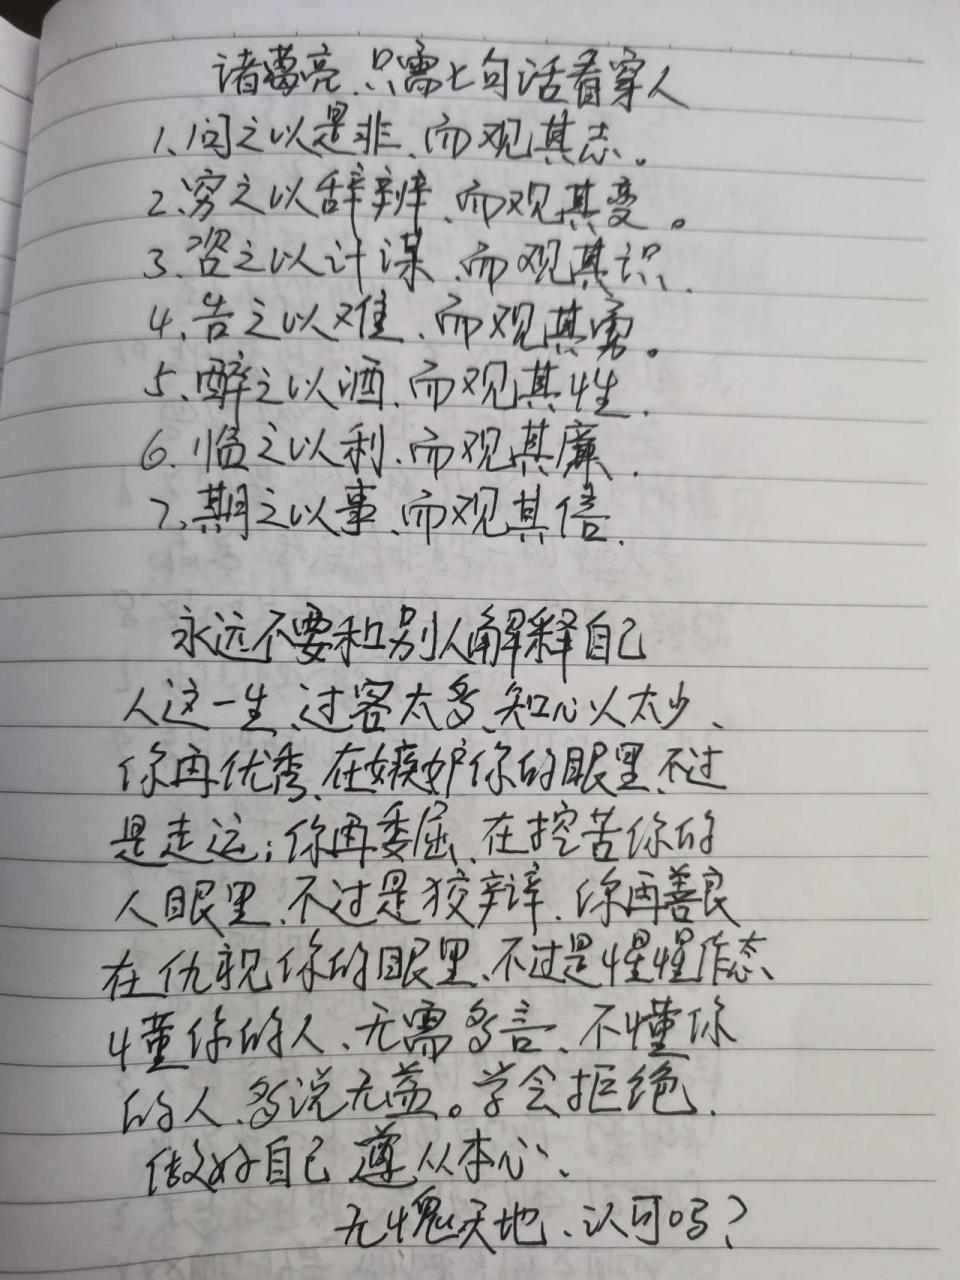 诸葛亮.只需七句话看穿人
1、问之以是非、而观其志。
2、穷之以辞辨、而观其变。
3、咨之以计谋、而观其识.
4、告之以难、而观其勇。
5、醉之以酒、而观其性.
6、临之以利、而观其廉.
7、期之以事、而观其信.
永远不要和别人解释自己
人这一生、过客太多、知心人太少、
你再优秀、在嫉妒你的眼里、不过
是走运；你再委屈、在挖苦你的
人眼里、不过是狡辩、你再善良
在仇视你的眼里、不过是惺惺作态、
懂你的人、无需多言、不懂你
的人、多说无益。学会拒绝、
做好自己 遵从本心、
无愧天地、认可吗？